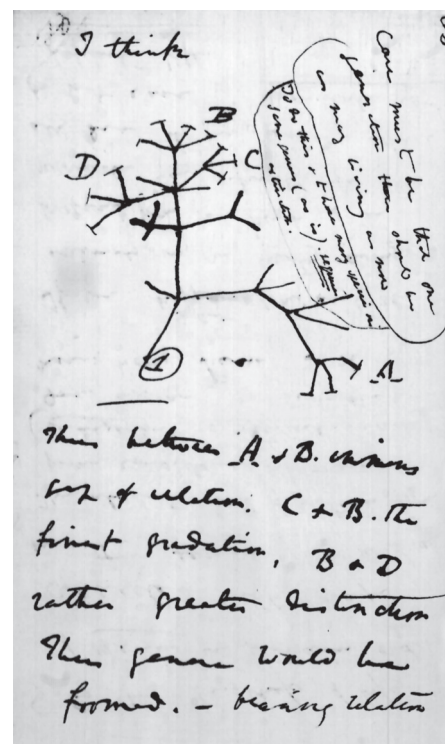 I think
Case must be that one
generation then should be
as many living as now
To do this & to have many species in
same genus (as is) requires
extinction.
B
D
C
1
A
Thus between A & B. immense
gap of relation. C & B. the
finest gradation, B & D
rather greater distinction
Thus genera would be
formed. — bearing relation